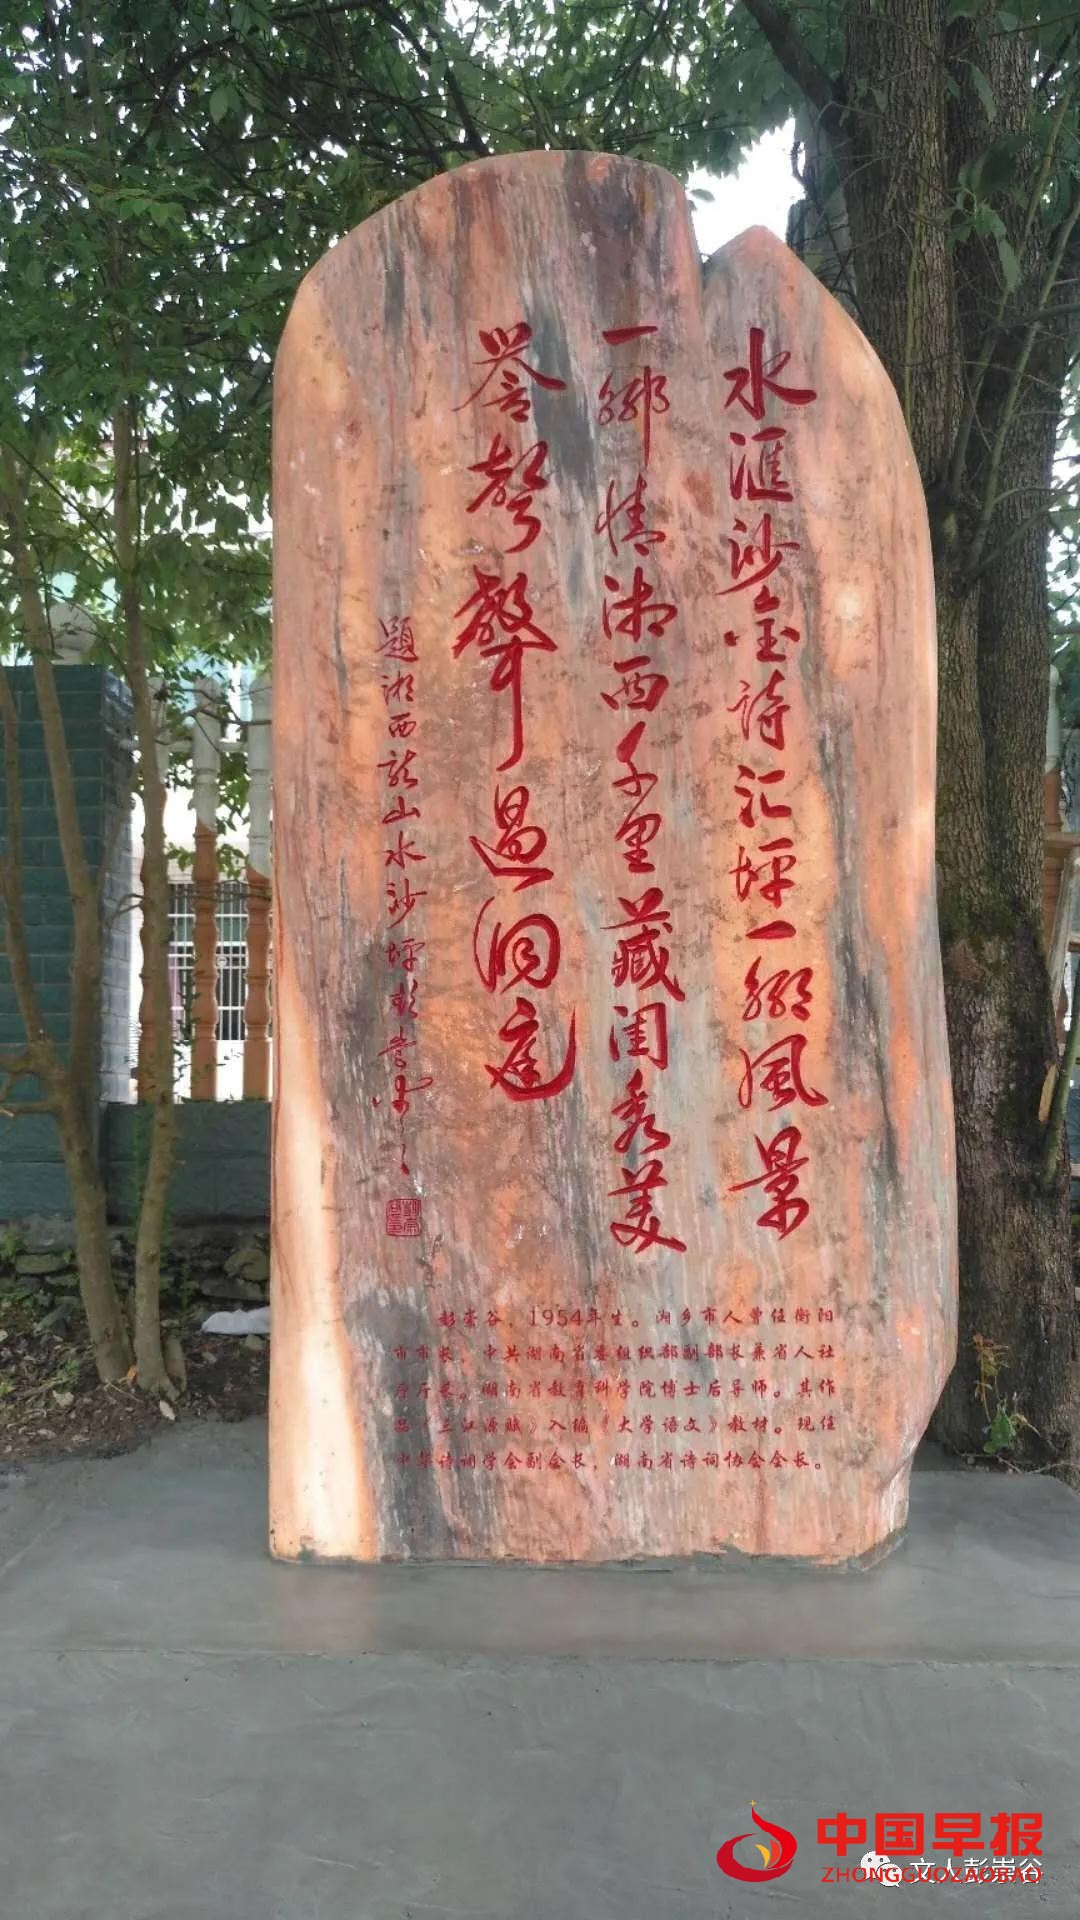 水滙沙金詩汇坪一鄉風景
一鄉情湘西千里藏闺秀美
譽聲擎過洞庭
題湘西龙山水沙坪彭崇谷
彭崇谷，1954年生。湘乡市人曾任衡阳
市市长，中共湖南省委组织部副部长兼省人社
厅厅长。湖南省教育科学院博士后导师。其作
品《三江源赋》入编《大学语文》教材。现任
中华诗词学会副会长，湖南省诗词协会会长。
中国早报
ZHONGGUOZAOBAO
文人彭崇谷